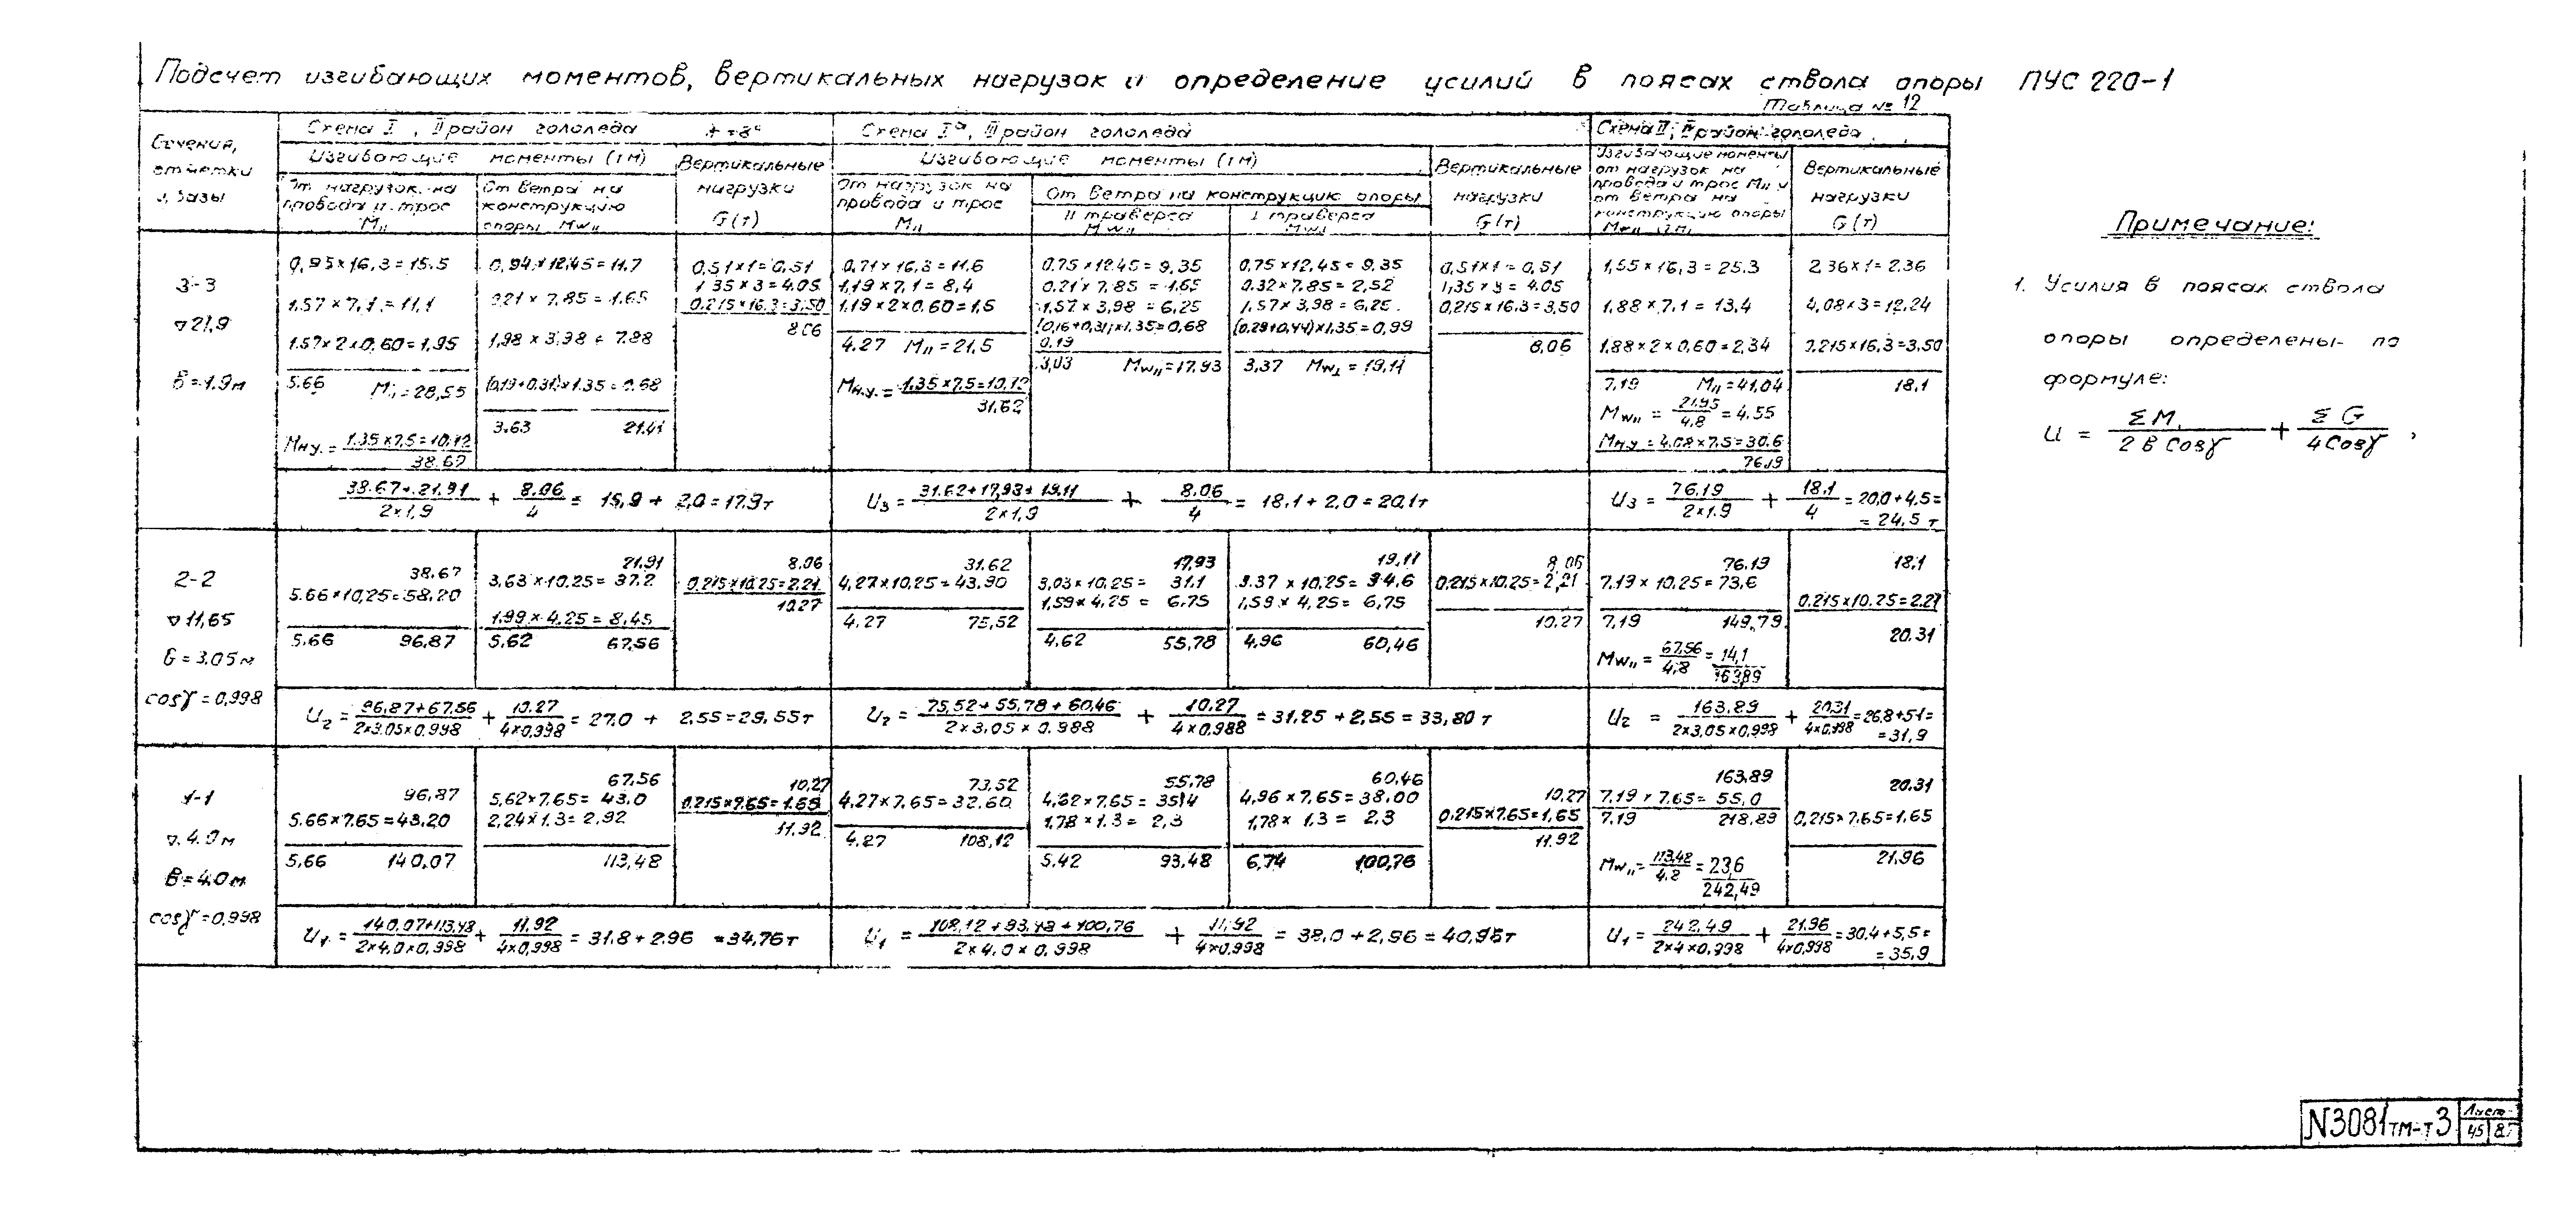 Подсчет изгибающих моментов, вертикальных нагрузок и определение усилий в поясах ствола опоры ПУС 220-1
Таблица № 12
Сечения,
отметки
и базы
Схема I, II район гололеда
Изгибающие моменты (тм)
От нагрузок на
провода и трос
M₁₁
От ветра на
конструкцию
опоры Mw₁₁
Вертикальные
нагрузки
G(т)
Схема Iа, II район гололеда
Изгибающие моменты (тм)
От нагрузок на
провода и трос
M₁₁
От ветра на конструкцию опоры
II траверса
Mw₁₁
⊥ траверса
Mw⊥
Вертикальные
нагрузки
G(т)
Схема II, район гололеда
Изгибающие моменты
от нагрузок на
провода и трос M₁₁ и
от ветра на
конструкцию опоры
Вертикальные
нагрузки
G(т)
3-3
▽21,9
в=1.9м
0,95×16,3=15.5
1,57×7,1=11,1
1.57×2×0,60=1,95
5.66 M₁₁=28,55
Mн.у.=1.35×7,5=10,12
38.67
0,94×12,45=11,7
0,21×7,85=1,65
1,98×3,98=7.88
(0,19+0,31)×1.35=0,68
3.63 21.91
0,51×1=0,51
1,35×3=4,05
0.215×16.3=3,50
8.06
0,71×16,3=11,6
1,19×7,1=8,4
1,19×2×0,60=1,5
4.27 M₁₁=21,5
Mн.у.=1,35×7,5=10,12
31,62
0.75×12.45=9,35
0.21×7,85=1.65
1,57×3,98=6,25
(0,16+0,31)×1,35=0,68
0,19
3,03 Mw₁₁=17,93
0,75×12,45=9,35
0.32×7.85=2,52
1,57×3,98=6,25
(0,29+0,44)×1,35=0,99
3,37 Mw⊥=19,11
0,51×1=0,51
1,35×3=4.05
0,215×16,3=3,50
8,06
1,55×16,3=25.3
1,88×7,1=13,4
1,88×2×0,60=2,34
7,19 M₁₁=41,04
Mw₁₁=21,95/4,8=4.55
Mн.у=4,08×7,5=30.6
76,19
2,36×1=2,36
4,08×3=12,24
0,215×16,3=3,50
18,1
(38.67+21.91)/(2×1,9)+8.06/4=15,9+2,0=17.9т
U₃=(31.62+17,93+19.11)/(2×1,9)+8.06/4=18.1+2.0=20,1т
U₃=76,19/(2×1.9)+18.1/4=20,0+4,5=
=24,5 т
2-2
▽11,65
в=3.05м
cosγ=0,998
38.67
5.66×10,25=58,20
5.66 96,87
21,91
3,63×10.25=37.2
1,99×4,25=8,45
5,62 67,56
8.06
0.215×10,25=2,21
10,27
31.62
4,27×10,25=43,90
4.27 75,52
17,93
3,03×10,25=31.1
1,59×4,25=6.75
4.62 55,78
19,11
3.37×10,25=34.6
1,59×4,25=6,75
4,96 60,46
8,06
0,215×10.25=2,21
10,27
76,19
7,19×10.25=73,6
7,19 149,79
Mw₁₁=67,56/4,8=14,1
163,89
18,1
0,215×10.25=2.21
20.31
U₂=(96,87+67.56)/(2×3.05×0.998)+10.27/(4×0,998)=27.0+2,55=29,55т
U₂=(75,52+55,78+60,46)/(2×3,05×0.988)+10,27/(4×0,988)=31,25+2,55=33,80 т
U₂=163.89/(2×3,05×0,998)+20,31/(4×0,998)=26,8+5,1=
=31,9
1-1
▽4.0м
в=4,0м
cosγ=0,998
96,87
5.66×7.65=43,20
5,66 140,07
67,56
5,62×7,65=43.0
2,24×1.3=2,92
113,48
10.27
0.215×7.65=1.65
11,92
73,52
4.27×7,65=32.60
4.27 108,12
55,78
4,62×7.65=35,4
1,78×1.3=2,3
5.42 93,48
60,46
4,96×7,65=38,00
1,78×1,3=2.3
6,74 100,76
10,27
0.215×7.65=1,65
11.92
163,89
7.19×7,65=55,0
7,19 218,89
Mw₁₁=113,48/4,8=23,6
242,49
20.31
0,215×7,65=1,65
21,96
U₁=(140,07+113,48)/(2×4,0×0,998)+11,92/(4×0,998)=31.8+2.96=34,76т
U₁=(108,12+93,48+100,76)/(2×4,0×0,998)+11,92/(4×0.998)=38,0+2,96=40,96т
U₁=242,49/(2×4×0,998)+21.96/(4×0,998)=30,4+5,5=
=35,9
Примечание:
1. Усилия в поясах ствола
опоры определены по
формуле:
U = ΣM/(2 в cosγ) + ΣG/(4 cosγ),
N3081тм-т3
Лист
45